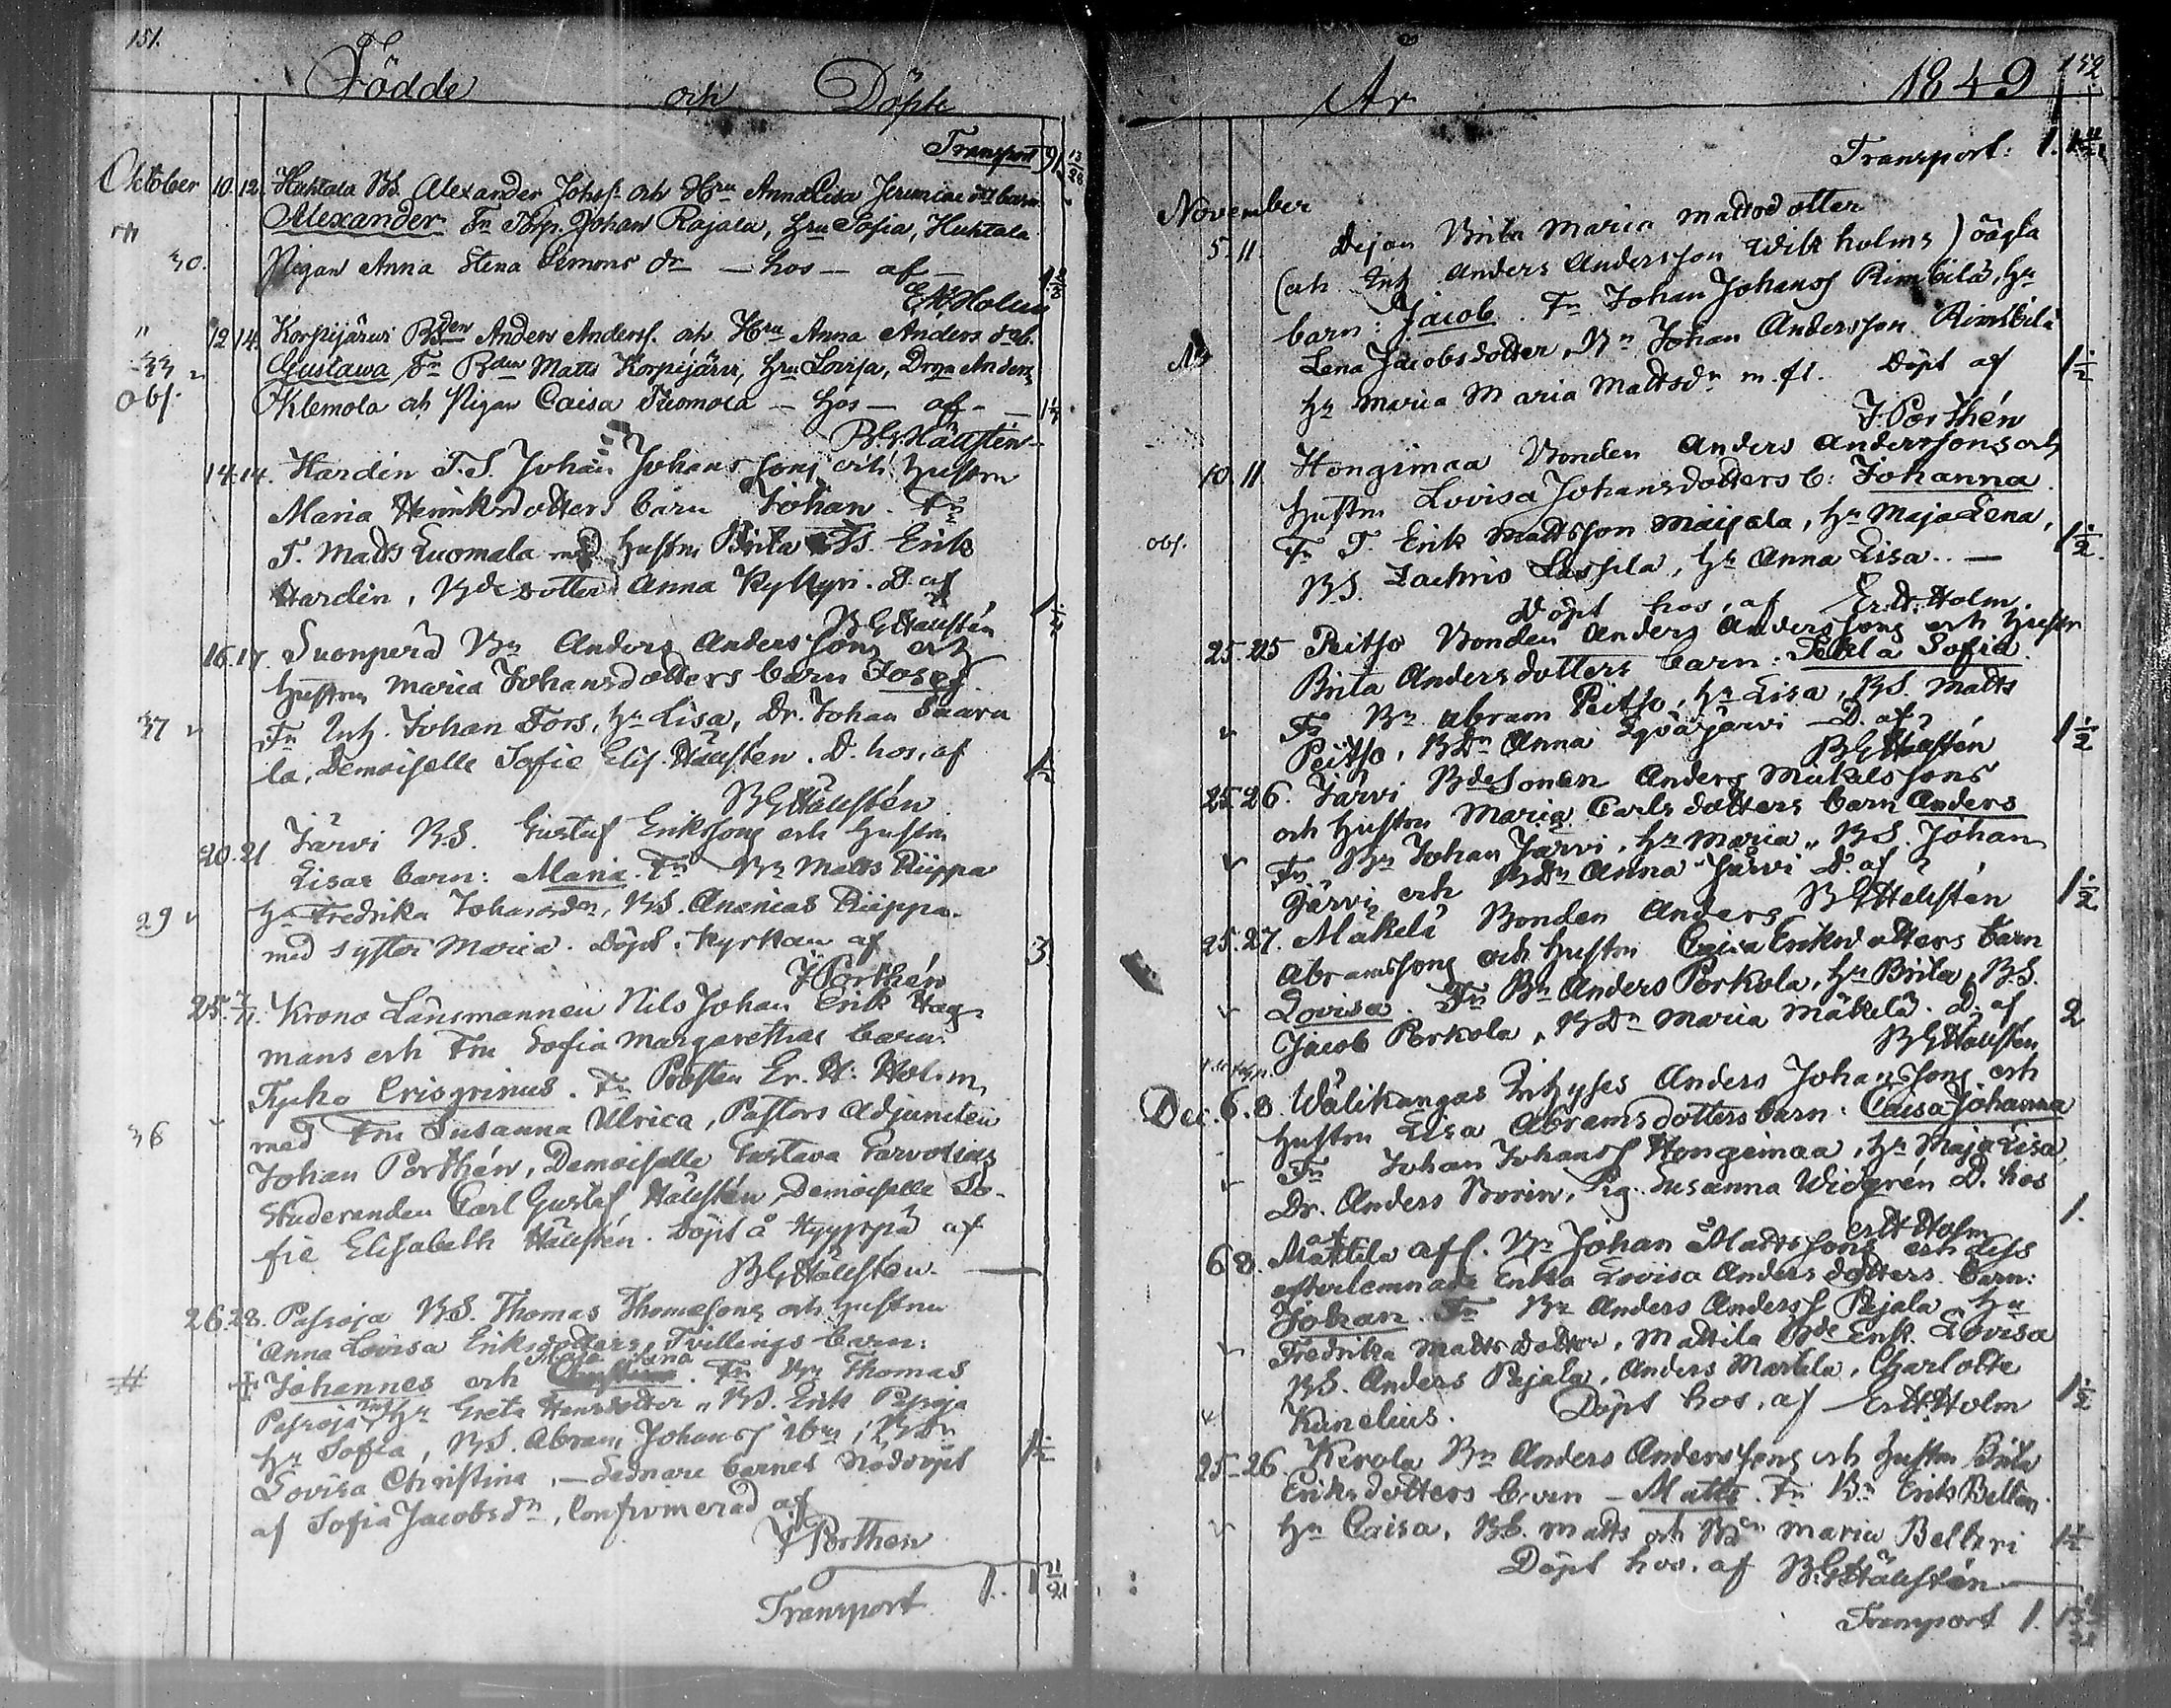 151.
Födde och Döpte
Transport 91 13/28
Oktober 10. 12. Huhtala BS. Alexander Johsf. och Hru Anna Lisa Jeremiae dr barn
Alexander Fr Torp. Johan Rajala, Hru Sofia, Huhtala
30. Pigan Anna Stena Simons dr — hos — af —
E.H. Holm
" 12 14. Korpijärwi Bden Anders Andersf. och Hru Anna Anders dr b.
33 Gustawa Fr Bden Matts Korpijärvi, Hru Lovisa, Drgn Anders
Obs. Klemola och Pigan Caisa Tuomola — hos — af —
B.G. Hällstén
14. 14. Hardin T.S. Johan Johanssons och Hustru
Maria Henriksdotters barn Johan. Fr
T. Matts Luomala med Hustru Brita TS. Erik
Hardin, Bde dotter Anna Kykyri. D. af
BGHällstén
16. 17. Suonperä Bn Anders Anderssons och
Hustru Maria Johansdotters barn Josef.
37 Fr Inh. Johan Fors, Hu Lisa, Dr. Johan Saare
la, Demoiselle Sofie Elis. Hällstén. D. hos, af
BGHällstén
20. 21 Järvi BS. Gustaf Erikssons och Hustru
Lisas barn: Maria. Fr Bn Matts Piippa
29 Hu Fredrika Johansdr, BS. Ananias Piippa
med syster Maria. Döpt i kyrkan af 3
J Porthén
25. Krono Länsmannen Nils Johan Erik Hag
mans och Fru Sofia Margarethas barn:
Tycho Crisgrinus. Fr Prosten Er. H. Holm
36 med Fru Susanna Ulrica, Pastors Adjuncten
Johan Porthén, Demoiselle Gustava Carvolius
Studeranden Carl Gustaf Hällstén, Demoiselle So-
fie Elisabeth Hällstén. Döpt å Kyyrpä af
BGHällstén.
26. 28. Passoja BS. Thomas Thomassons och Hustru
Anna Lovisa Eriksdotters Tvillings barn:
Maja Lena
# Johannes och. Fr Bn Thomas
Passoja, Hu Greta Hansdotter, BS. Erik Passoja
Hu Sofia, BS. Abram Johansf, BDr
Lovisa Christina, — Sednare barnet Nöddöpt
af Sofia Jacobsdr, Confirmerad af
J Porthén
Transport 1. 1 11/21
År 1849 152
Transport: 1.
November
5. 11. Dejan Brita Maria Mattsdotter
(och Inh Anders Andersson Wikholms) oägta
barn: Jacob. Fr Johan Johansf Rimbilä, Hu
Lena Jacobsdotter, Bn Johan Andersson Rimbilä
Hu Maria Maria Mattsdr m.fl. Döpt af 1 1/2
J Porthén
10. 11. Hongimaa Bonden Anders Anderssons och
Hustru Lovisa Johansdotters b: Johanna.
obs. Fr T. Erik Mattsson Maijala, Hu Maja Lena, 1 1/2
BS. Zachris Lassila, Hu Anna Lisa. —
Döpt hos, af Er.H. Holm.
25. 25 Peitso Bonden Anders Anderssons och Hustru
Brita Andersdotters barn: Tekla Sofia.
Fr Bn Abram Peitso, Hu Lisa, BS. Matts
Peitso, BDr Anna Syväjärvi D. af 1 1/2
BGHällstén
25. 26. Järvi BdeSonen Anders Mickelssons
och Hustru Maria Carlsdotters barn Anders
Fr Bn Johan Järvi, Hu Maria, BS. Johan
Järvi och BDr Anna Järvi D. af
BGHällstén 1 1/2
25. 27. Mäkelä Bonden Anders
Abramssons och Hustru Caisa Eriksdotters barn
Lovisa. Fr Bn Anders Porkola, Hu Brita, BS.
Jacob Porkola, BDr Maria Mäkelä. D. af 2
BGHällstén
Dec. 6. 8. Wälikangas Inhyses Anders Johanssons och
Hustru Lisa Abramsdotters barn: Caisa Johanna
Fr Johan Johansf Hongimaa, Hu Maja Lisa,
Dr. Anders Borin, Pig. Susanna Widgrén D. hos
af ErHHolm 1.
6 8. Mattila afl. Bn Johan Mattssons och dess
efterlemnade Enka Lovisa Andersdotters barn:
Johan. Fr Bn Anders Andersf Pejala, Hu
Fredrika Mattsdotter, Mattila Bde Enk. Lovisa
BS. Anders Pejala, Anders Mattila, Charlotte
Kunelius. Döpt hos, af ErHHolm 1 1/2
25-26. Kerola Bn Anders Anderssons och Hustru Brita
Eriksdotters barn — Matts. Fr Bn Erik Belteri
Hu Caisa, BS. Matts och BDr Maria Belteri 1 1/2
Döpt hos, af BGHällstén
Transport 1.